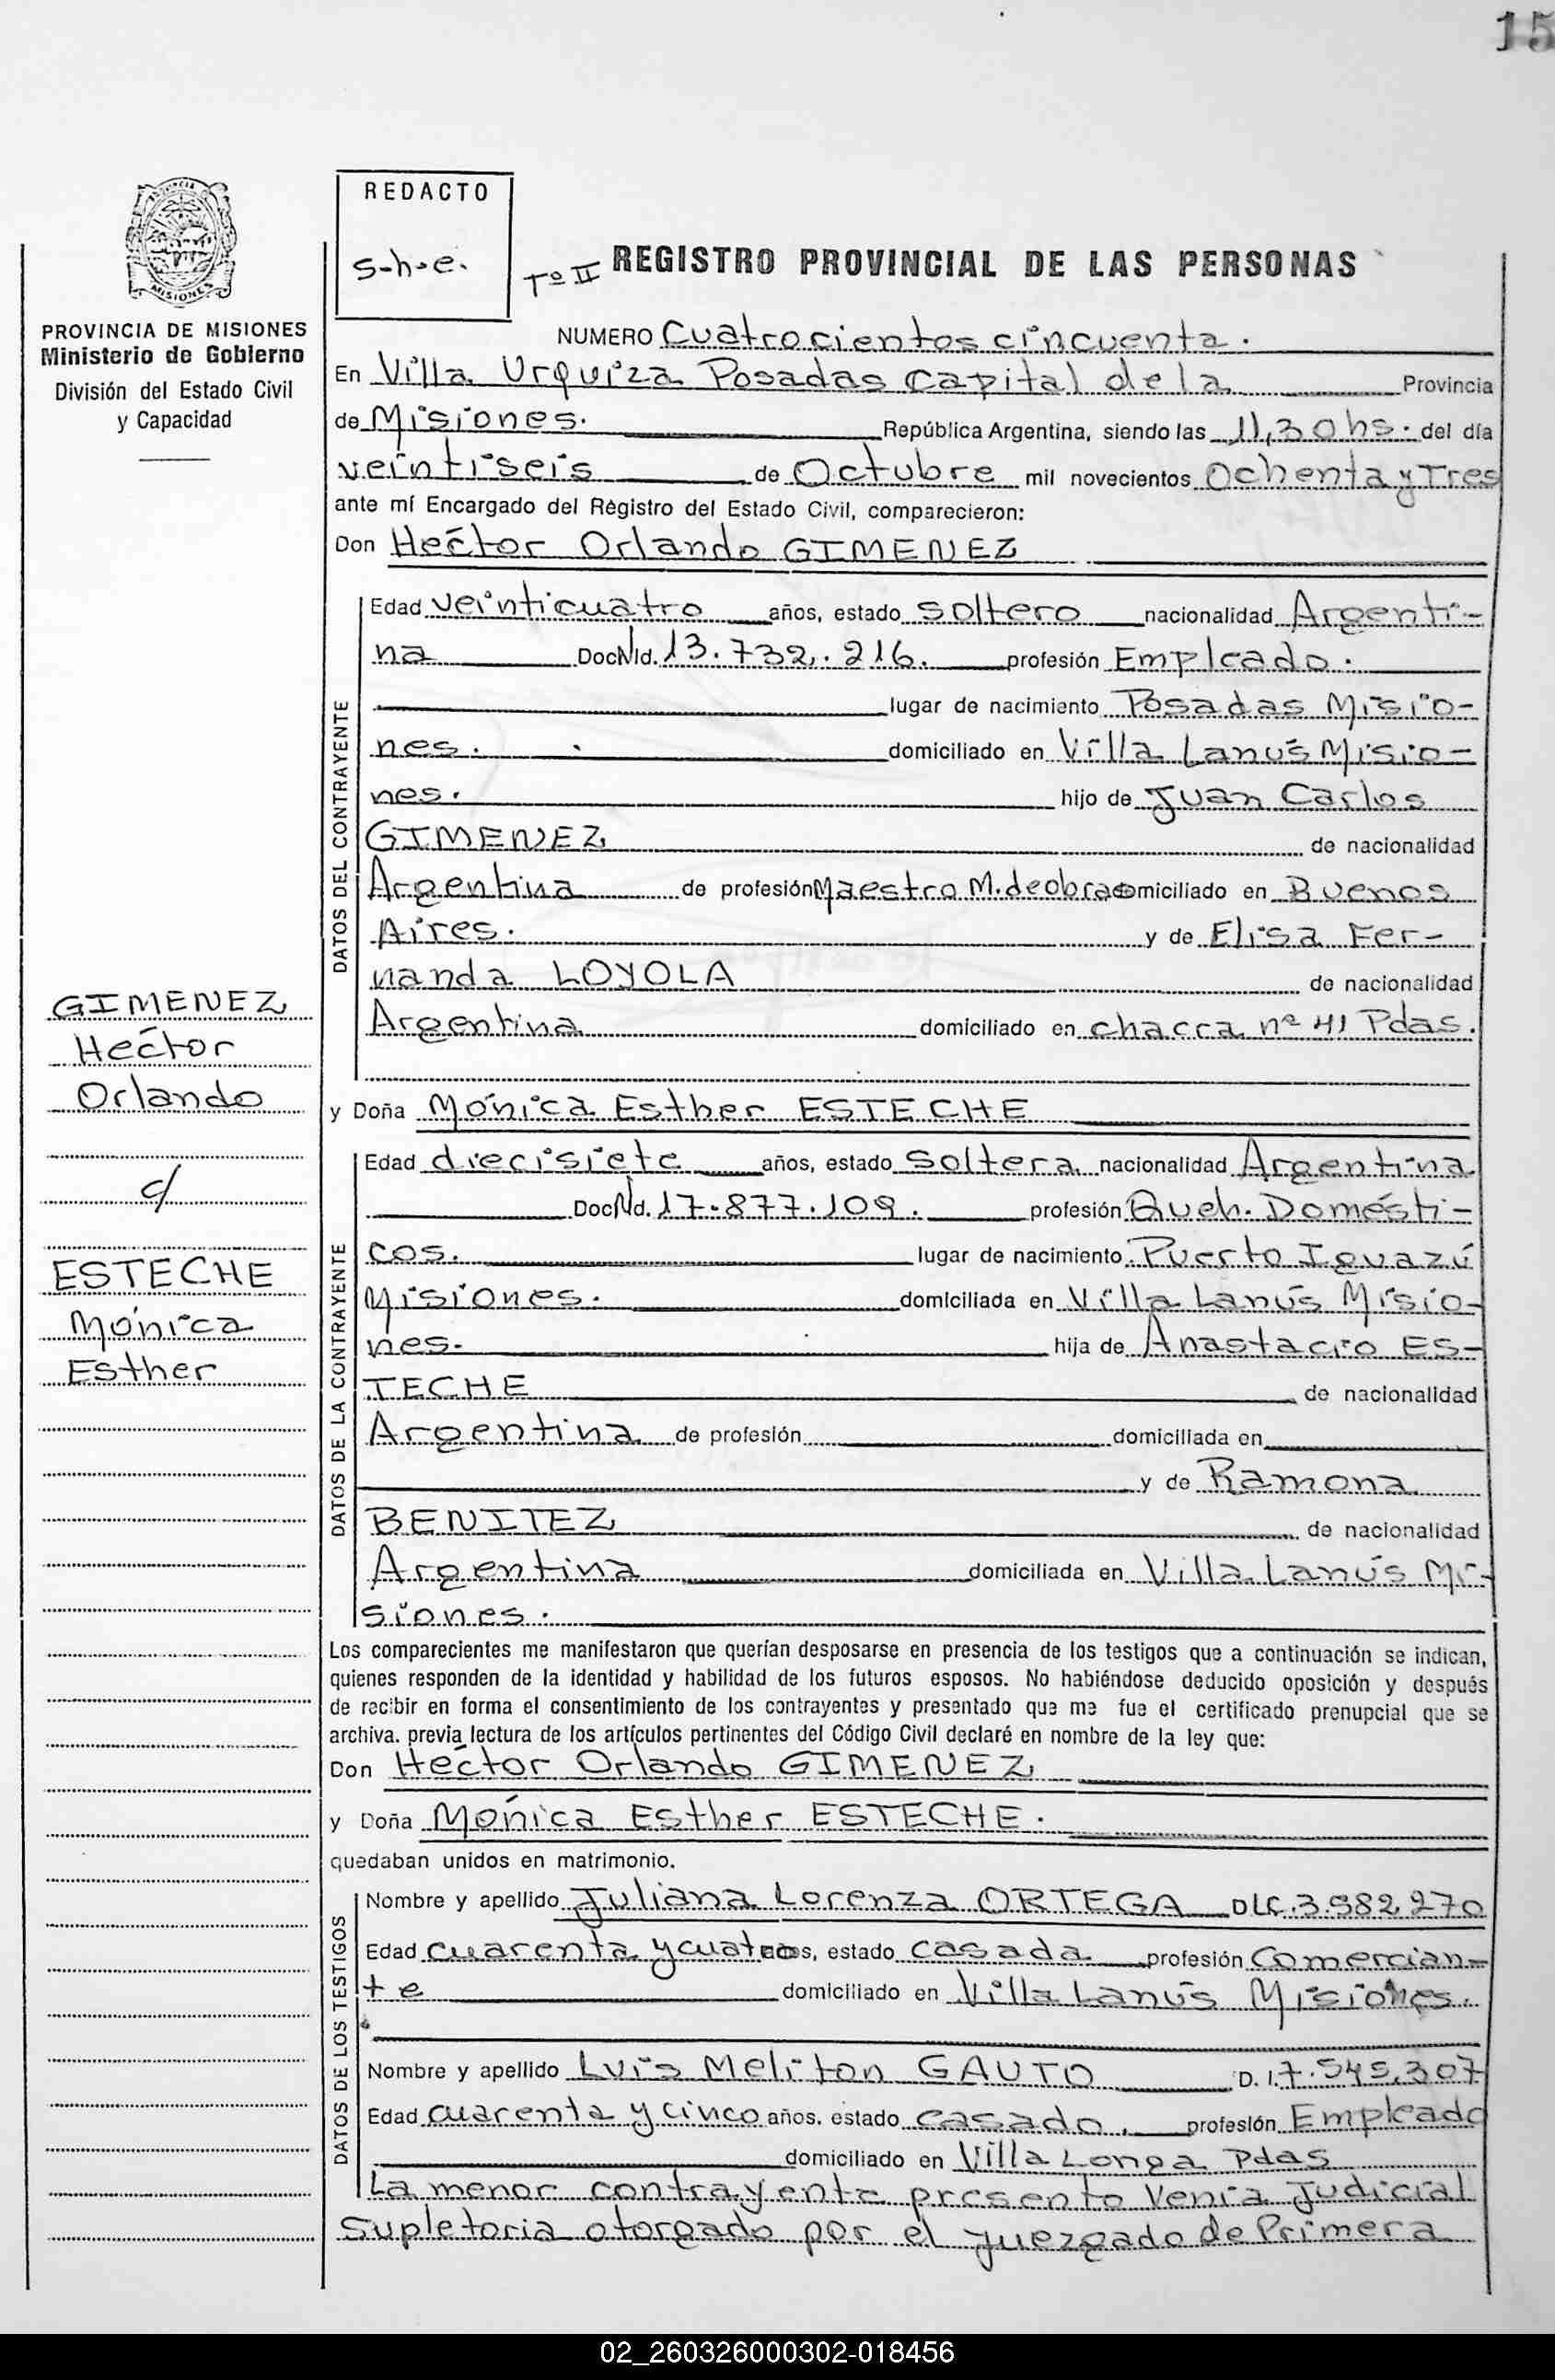 15
REDACTO
s-h-e.
Tº II REGISTRO PROVINCIAL DE LAS PERSONAS
PROVINCIA DE MISIONES
Ministerio de Gobierno
División del Estado Civil
y Capacidad
NUMERO Cuatrocientos cincuenta.
En Villa Urquiza Posadas Capital de la Provincia
de Misiones. República Argentina, siendo las 11,30 hs. del día
veintiseis de Octubre mil novecientos Ochenta y Tres
ante mí Encargado del Registro del Estado Civil, comparecieron:
Don Héctor Orlando GIMENEZ
DATOS DEL CONTRAYENTE
Edad veinticuatro años, estado soltero nacionalidad Argenti-
na DocNId. 13.732.216. profesión Empleado.
lugar de nacimiento Posadas Misio-
nes. domiciliado en Villa Lanús Misio-
nes. hijo de Juan Carlos
GIMENEZ de nacionalidad
Argentina de profesión Maestro M. de obra domiciliado en Buenos
Aires. y de Elisa Fer-
nanda LOYOLA de nacionalidad
Argentina domiciliado en chacra nº 41 Pdas.
GIMENEZ
Héctor
Orlando
c/
ESTECHE
Mónica
Esther
y Doña Mónica Esther ESTECHE
DATOS DE LA CONTRAYENTE
Edad diecisiete años, estado soltera nacionalidad Argentina
DocNId. 17.877.109. profesión Queh. Domésti-
cos. lugar de nacimiento Puerto Iguazú
Misiones. domiciliada en Villa Lanús Misio-
nes. hija de Anastacio ES-
TECHE de nacionalidad
Argentina de profesión domiciliada en
y de Ramona
BENITEZ de nacionalidad
Argentina domiciliada en Villa Lanús Mi-
siones.
Los comparecientes me manifestaron que querían desposarse en presencia de los testigos que a continuación se indican,
quienes responden de la identidad y habilidad de los futuros esposos. No habiéndose deducido oposición y después
de recibir en forma el consentimiento de los contrayentes y presentado que me fue el certificado prenupcial que se
archiva. previa lectura de los artículos pertinentes del Código Civil declaré en nombre de la ley que:
Don Héctor Orlando GIMENEZ
y Doña Mónica Esther ESTECHE.
quedaban unidos en matrimonio.
DATOS DE LOS TESTIGOS
Nombre y apellido Juliana Lorenza ORTEGA DLC.3.982,270
Edad cuarenta y cuatro años, estado casada profesión Comercian-
te domiciliado en Villa Lanús Misiones.
Nombre y apellido Luis Meliton GAUTO D.I.7.545.307
Edad cuarenta y cinco años. estado casado. profesión Empleado
domiciliado en Villa Longa Pdas
La menor contrayente presento Venia Judicial
Supletoria otorgado por el juezgado de Primera
02_260326000302-018456